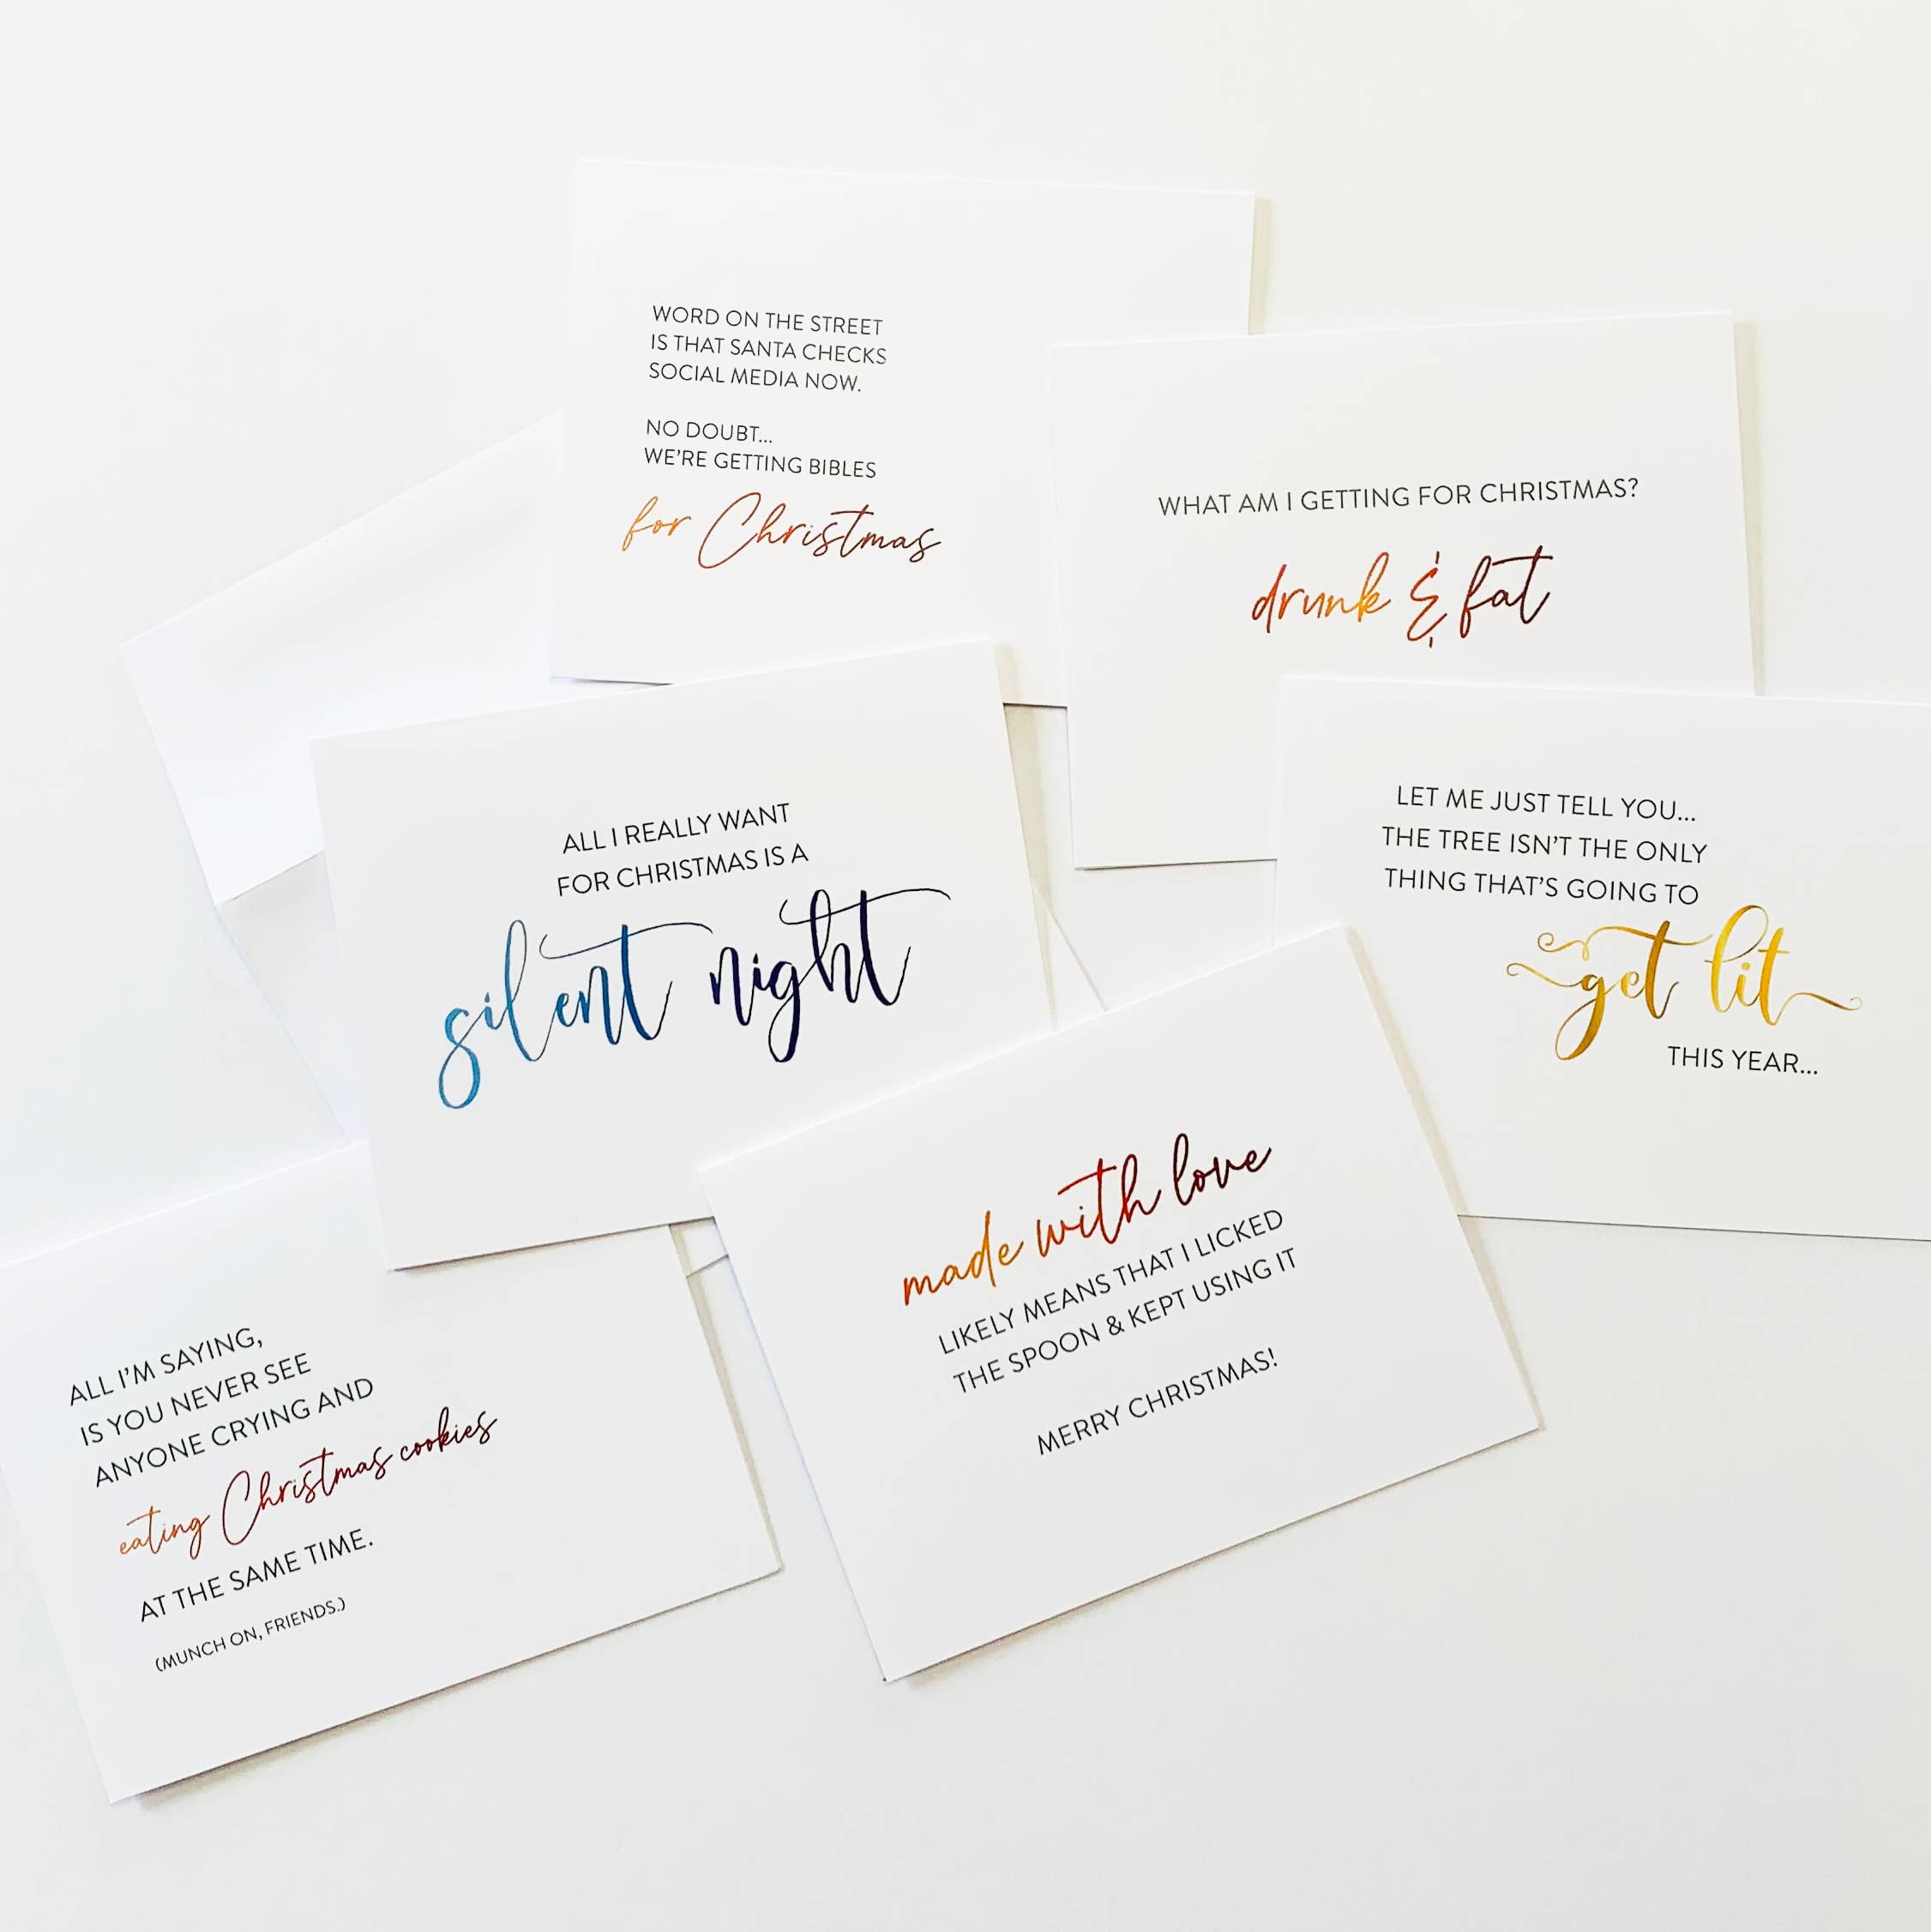 WORD ON THE STREET
IS THAT SANTA CHECKS
SOCIAL MEDIA NOW.
NO DOUBT...
WE'RE GETTING BIBLES
for Christmas
WHAT AM I GETTING FOR CHRISTMAS?
drunk & fat
ALL I REALLY WANT
FOR CHRISTMAS IS A
silent night
LET ME JUST TELL YOU...
THE TREE ISN'T THE ONLY
THING THAT'S GOING TO
get lit
THIS YEAR...
made with love
LIKELY MEANS THAT I LICKED
THE SPOON & KEPT USING IT
MERRY CHRISTMAS!
ALL I'M SAYING,
IS YOU NEVER SEE
ANYONE CRYING AND
eating Christmas cookies
AT THE SAME TIME.
(MUNCH ON, FRIENDS.)